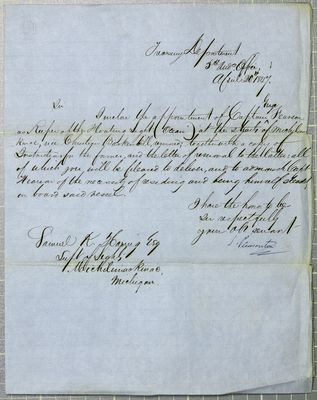 Treasury Department
5th Aud. Office
April 1847
Sir
I inclose the appointment of Captain
as Keeper of the floating Light at the Straits of Mackinac,
vice removed, together with a copy of
Instructions for the former, and the letter of removal to the latter all
of which you will be pleased to deliver, and to admonish Capt.
of the necessity of residing and being himself steadily
on board said vessel.
I have the honor to be
Sir respectfully
your Ob servant
Samuel K. Haring Esq
Supt of Lights
Michilimackinac
Michigan